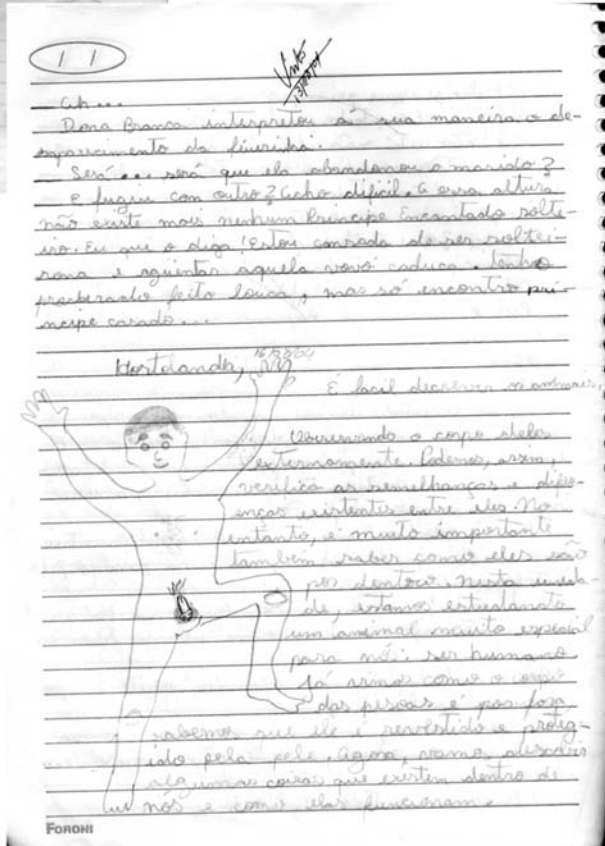 11
Visto
13/02/04
Ah...
Dona Branca interpretou à sua maneira o de-
saparecimento da feiurinha:
Será... será que ela abandonou o marido?
E fugiu com outro? Acho difícil. A essa altura
não existe mais nenhum Príncipe Encantado soltei-
ro. Eu que o diga! Estou cansada de ser soltei-
rona e agüentar aquela vovó caduca. Tenho
procurado feito louca, mas só encontro prí-
ncipe casado...
Hortolandia, 16/02/04
É facil descrever os animais,
Observando o corpo deles
externamente. Podemos, assim,
verifica as semelhanças e dife-
renças existentes entre eles. No
entanto, é muito importante
tambem saber como eles são
por dentro. Nesta unida-
de, estamos estudando
um animal muito especial
para nós: ser humano
Já vimos como o corpo
das pessoas é por fora,
sabemos que ele é revestido e proteg-
ido pela pele. Agora, vamos descobrir
algumas coisas que existem dentro de
nós e como elas funcionam.
FORONI